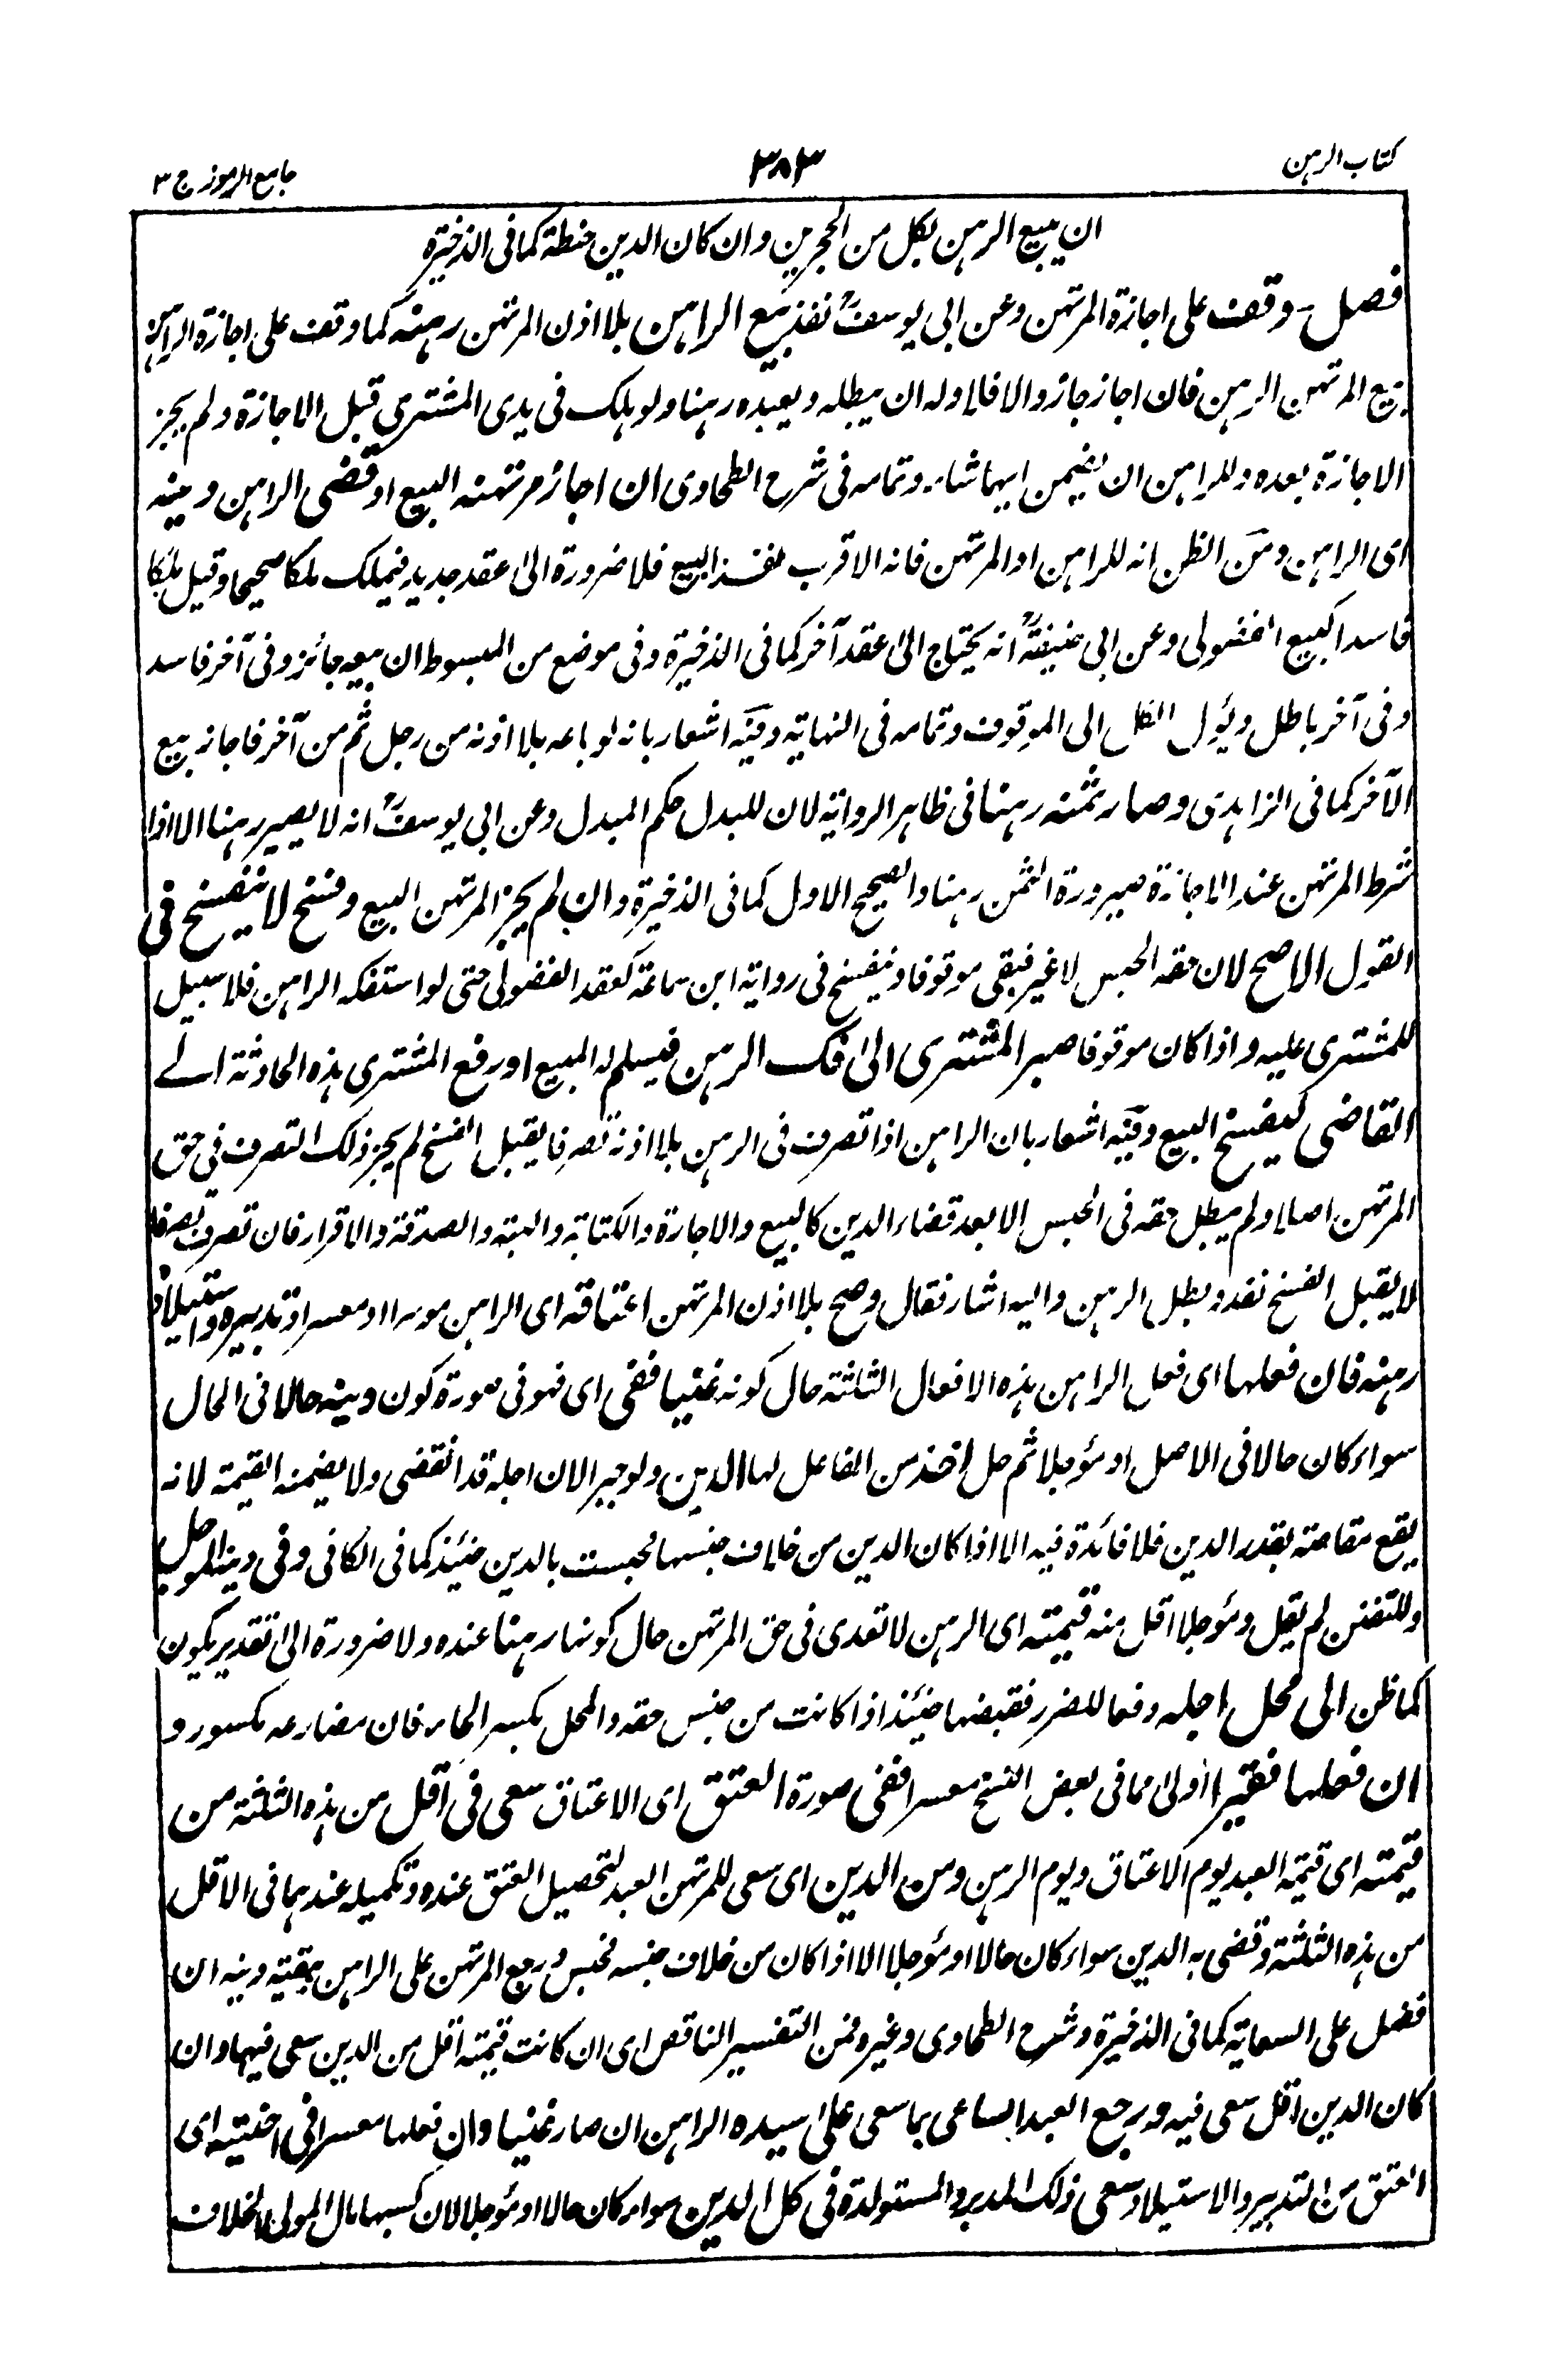 كتاب الرهن
٣٨٣
جامع الرموز ج ٣
ان يبيع الرهن بكل من الحجرين وان كان الدين حنطة كما فى الذخيرة
فصل - وقف على اجازة المرتهن وعن ابى يوسفؒ نفذ بيع الراهن بلا اذن المرتهن رهنه كما وقف على اجازة الراهن
بيع المرتهن الرهن فان اجاز جاز والا فلا وله ان يبطله ويعيده رهنا ولو هلك فى يدى المشترى قبل الاجازة ولم يجز
الاجازة بعده وللراهن ان يضمن ايهما شاء وتمامه فى شرح الطحاوى ان اجاز مرتهنه البيع او قضى الراهن دينه
اى الراهن ومن الظن انه للراهن او المرتهن فانه الاقرب نفذ البيع فلا ضرورة الى عقد جديد فيملك ملكا صحيحا وقيل ملكا
فاسدا كبيع الفضولى وعن ابى حنيفةؒ انه يحتاج الى عقد آخر كما فى الذخيرة وفى موضع من المبسوط ان بيعه جائز وفى آخر فاسد
وفى آخر باطل ويؤل الكل الى الموقوف وتمامه فى النهاية وفيه اشعار بانه لو باعه بلا اذنه من رجل ثم من آخر فاجاز بيع
الآخر كما فى الزاهدى وصار ثمنه رهنا فى ظاهر الرواية لان للبدل حكم المبدل وعن ابى يوسفؒ انه لا يصير رهنا الا اذا
شرط المرتهن عند الاجازة صيرورة الثمن رهنا والصحيح الاول كما فى الذخيرة وان لم يجز المرتهن البيع وفسخ لا ينفسخ فى
القول الاصح لان حقه الحبس لا غير فبقى موقوفا وينفسخ فى رواية ابن سماعة كعقد الفضولى حتى لو استفكه الراهن فلا سبيل
للمشترى عليه واذا كان موقوفا صبر المشترى الى فك الرهن فيسلم له المبيع او رفع المشترى هذه الحادثة الے
القاضى ليفسخ البيع وفيه اشعار بان الراهن اذا تصرف فى الرهن بلا اذنه تصرفا يقبل الفسخ لم يجز ذلك التصرف فى حق
المرتهن اصلا ولم يبطل حقه فى الحبس الا بعد قضاء الدين كالبيع والاجارة والكتابة والهبة والصدقة والاقرار فان تصرف تصرفا
لا يقبل الفسخ نفذ وبطل الرهن واليه اشار فقال وصح بلا اذن المرتهن اعتاقه اى الراهن موسرا او معسرا وتدبيره واستيلاده
رهنه فان فعلها اى فعل الراهن هذه الافعال الثلثة حال كونه غنيا ففى اى فهو فى صورة كون دينه حالا فى الحال
سواء كان حالا فى الاصل او مؤجلا ثم حل اخذ من الفاعل لها الدين ولو جبر الان اجله قد انقضى ولا يضمنه القيمة لانه
يقع مقاصة بقدر الدين فلا فائدة فيه الا اذا كان الدين من خلاف جنسها فحبست بالدين حينئذ كما فى الكافى وفى دينه المؤجل
وللتفنن لم يقل ومؤجلا اقل منه قيمته اى الرهن لا تعدى فى حق المرتهن حال كونها رهنا عنده ولا ضرورة الى تقدير يكون
كما ظن الى محل اجله دفعا للضرر فقبضها حينئذ اذا كانت من جنس حقه والمحل بكسر الحاء فان مضارعه مكسور و
ان فعلها فقيرا اولى مما فى بعض النسخ معسرا ففى صورة العتق اى الاعتاق سعى فى اقل من هذه الثلثة من
قيمته اى قيمة العبد يوم الاعتاق ويوم الرهن ومن الدين اى سعى للمرتهن العبد لتحصيل العتق عنده وتكميله عندهما فى الاقل
من هذه الثلثة وقضى به الدين سواء كان حالا او مؤجلا الا اذا كان من خلاف جنسه فحبس ورجع المرتهن على الراهن ببقية دينه ان
فضل على السعاية كما فى الذخيرة وشرح الطحاوى وغيره فمن التفسير الناقص اى ان كانت قيمته اقل من الدين سعى فيها وان
كان الدين اقل سعى فيه ويرجع العبد الساعى بما سعى على سيده الراهن ان صار غنيا وان فعلها معسرا فى اختيه اى
العتق من التدبير والاستيلاد سعى ذلك المدبر والمستولدة فى كل الدين سواء كان حالا او مؤجلا لان كسبهما مال المولى بخلاف